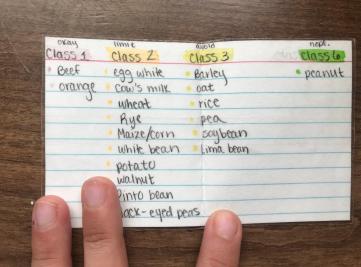 okay limit avoid nept.
Class 1 Class 2 Class 3 Class 6
Beef egg white Barley peanut
orange cow's milk oat
wheat rice
Rye pea
Maize/corn soybean
white bean lima bean
potato
walnut
Pinto bean
black-eyed peas